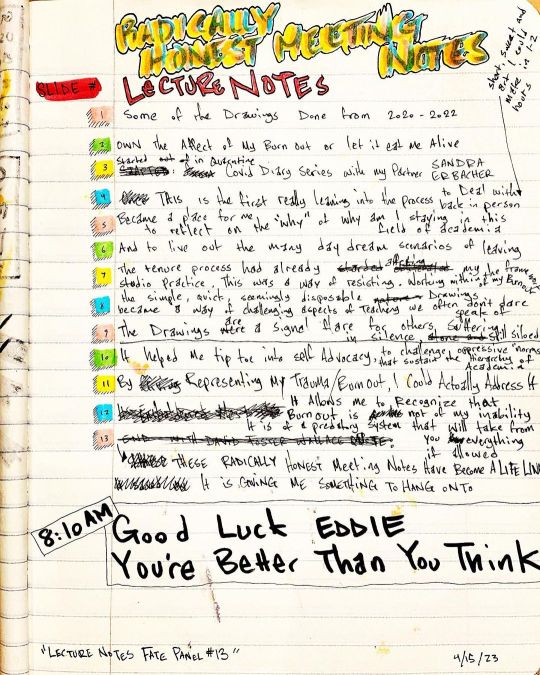 RADICALLY
HONEST MEETING
NOTES
short, sweet and
Art I could
make in 1-2
hours
SLIDE #
LECTURE NOTES
1 Some of the Drawings Done from 2020 - 2022
2 OWN the Affect of My Burn out or let it eat me Alive
started out of in Quarantine
3 Covid Diary Series with my Partner SANDRA
ERBACHER
4 This is the first really leaning into the process to Deal with
back in person
5 Became a place for me to reflect on the "why" of why am I staying in this
field of academia
6 And to live out the many day dream scenarios of leaving
7 The tenure process had already my
studio practice. This was a way of resisting. Working within the frame of my Burnout
8 the simple, quiet, seemingly disposable Drawings
became a way of challenging aspects of Teaching we often don't dare
speak of
9 The Drawings are a signal flare for others suffering
in silence, still siloed
10 It helped Me tip toe into self Advocacy, to challenge oppressive "norms"
that sustain the Hierarchy of
Academia
11 By Representing My Trauma/Burnout, I Could Actually Address It
It Allows me to Recognize that
12 Burnout is not of my inability
It is of a predatory system that will take from
13 END WITH DAVID FOSTER WALLACE QUOTE. you everything
if allowed
THESE RADICALLY HONEST Meeting Notes Have Become A LIFE LINE
It is GIVING ME SOMETHING TO HANG ONTO
8:10AM
Good Luck EDDIE
You're Better Than You Think
"LECTURE NOTES FATE PANEL #13"
4/15/23